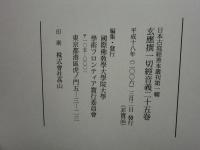 日本古写経善本叢刊第一輯
玄應撰一切経音義二十五巻
平成十八年(二〇〇六)三月二日 発行
(非売品)
編集・発行
国際佛教学大学院大学
学術フロンティア実行委員会
東京都港区虎ノ門五―三―二三
印刷 株式会社髙山